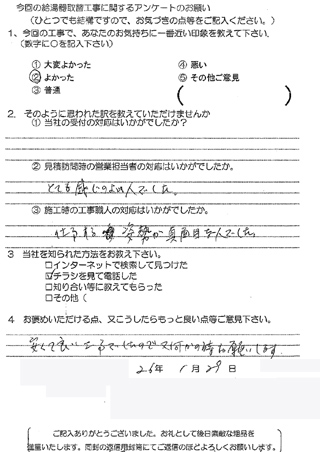 今回の給湯器取替工事に関するアンケートのお願い
(ひとつでも結構ですので、お気づきの点等をご記入ください。)
1、今回の工事で、あなたのお気持ちに一番近い印象を教えて下さい。
(数字に○を記入下さい)
① 大変よかった ④ 悪い
② よかった ⑤ その他ご意見
③ 普通 ( )
2. そのように思われた訳を教えていただけませんか
① 当社の受付の対応はいかがでしたか?
② 見積訪問時の営業担当者の対応はいかがでしたか。
とても感じのよい人でした。
③ 施工時の工事職人の対応はいかがでしたか。
仕事する姿勢が真面目な人でした。
3 当社を知られた方法をお教え下さい。
□インターネットで検索して見つけた
☑チラシを見て電話した
□知り合い等に教えてもらった
□その他(
4 お褒めいただける点、又こうしたらもっと良い点等ご意見下さい。
安くて良い工事でしたので又何かの時お願いします。
26年 1月29日
ご記入ありがとうございました。お礼として後日素敵な粗品を
進呈いたします。同封の返信用封筒にてご返信のほどよろしくお願いします。